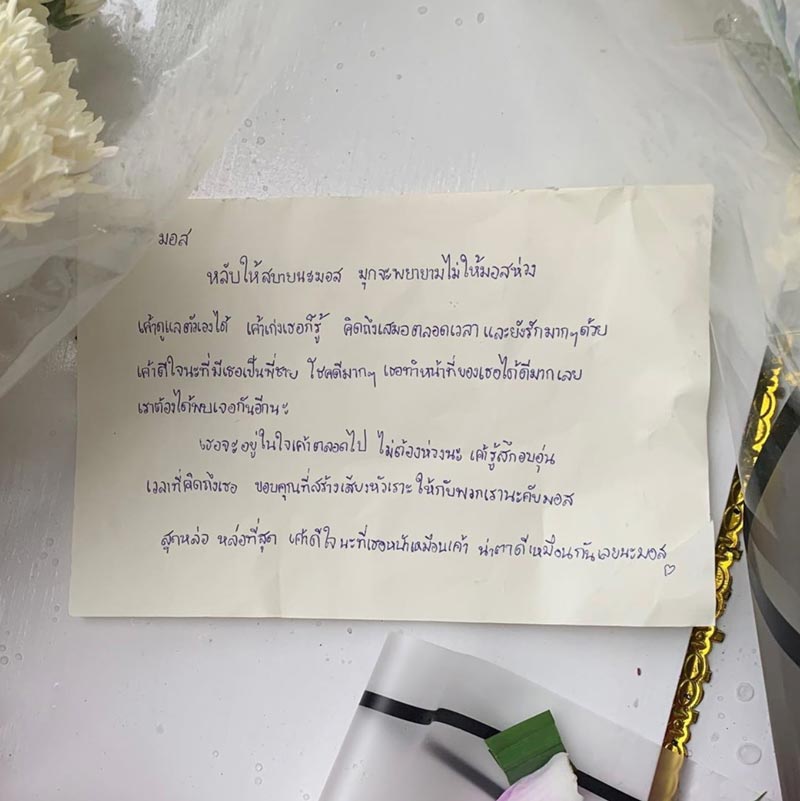 มอส
หลับให้สบายนะมอส มุกจะพยายามไม่ให้มอสห่วง
เค้าดูแลตัวเองได้ เค้าเก่งเธอก็รู้ คิดถึงเสมอตลอดเวลา และยังรักมากๆด้วย
เค้าดีใจนะที่มีเธอเป็นพี่ชาย โชคดีมากๆ เธอทำหน้าที่ของเธอได้ดีมากเลย
เราต้องได้พบเจอกันอีกนะ
เธอจะอยู่ในใจเค้าตลอดไป ไม่ต้องห่วงนะ เค้ารู้สึกอบอุ่น
เวลาที่คิดถึงเธอ ขอบคุณที่สร้างเสียงหัวเราะให้กับพวกเรานะคับมอส
สุดหล่อ หล่อที่สุด เค้าดีใจนะที่เธอหน้าเหมือนเค้า น่าตาดีเหมือนกันเลยนะมอส